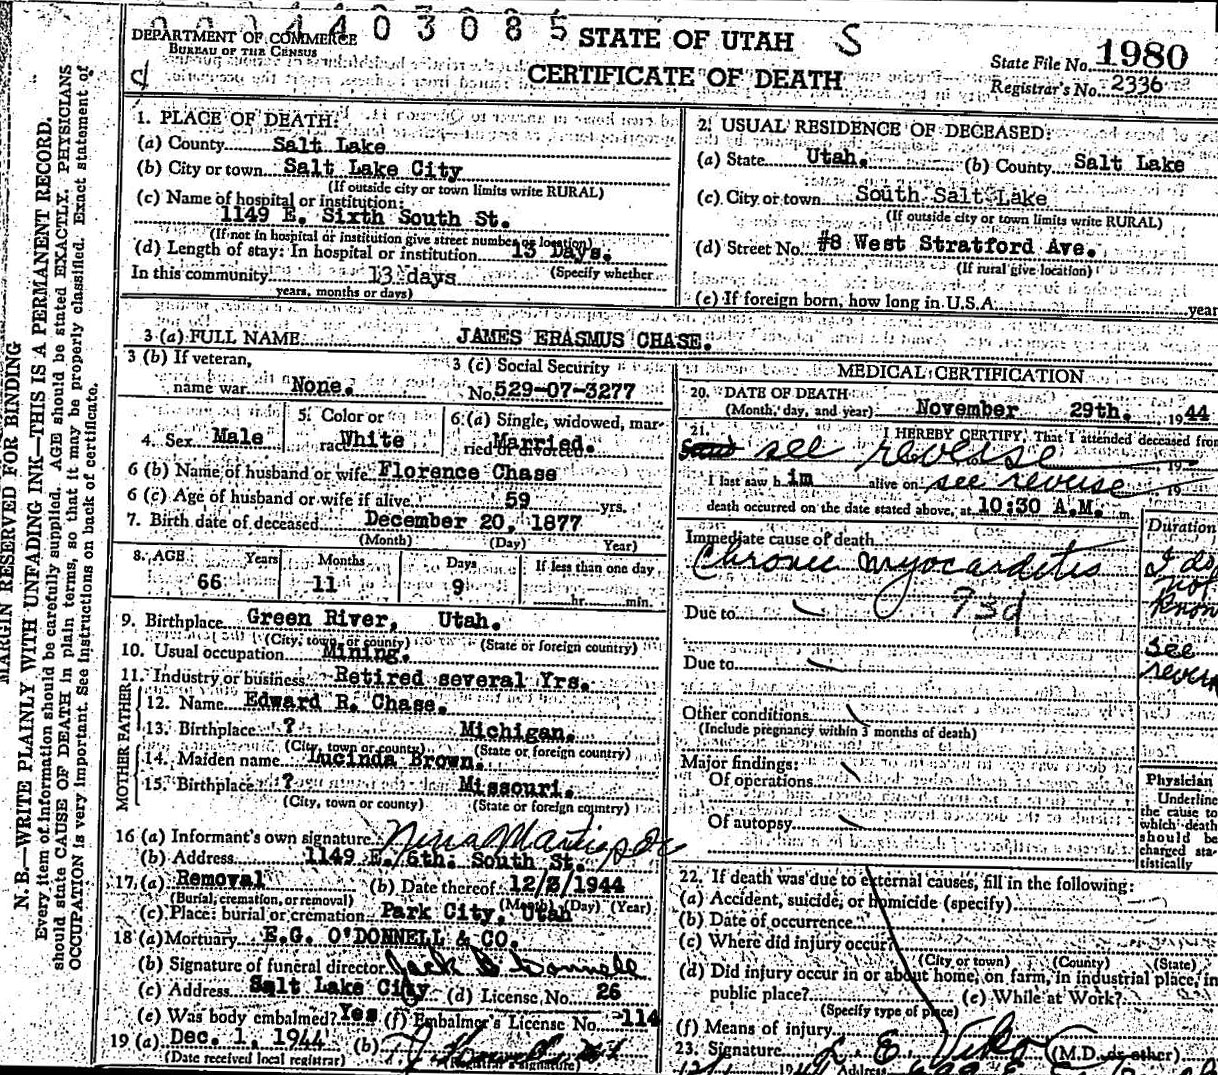 0 0 1 4 4 0 3 0 8 5
DEPARTMENT OF COMMERCE
BUREAU OF THE CENSUS
STATE OF UTAH S
CERTIFICATE OF DEATH
State File No. 1980
Registrar's No. 2336
MARGIN RESERVED FOR BINDING
N. B.—WRITE PLAINLY WITH UNFADING INK—THIS IS A PERMANENT RECORD.
Every item of information should be carefully supplied. AGE should be stated EXACTLY. PHYSICIANS
should state CAUSE OF DEATH in plain terms, so that it may be properly classified. Exact statement of
OCCUPATION is very important. See instructions on back of certificate.
1. PLACE OF DEATH:
(a) County Salt Lake
(b) City or town Salt Lake City
(If outside city or town limits write RURAL)
(c) Name of hospital or institution:
1149 E. Sixth South St.
(If not in hospital or institution give street number or location)
(d) Length of stay: In hospital or institution 13 Days.
In this community 13 days (Specify whether
years, months or days)
2. USUAL RESIDENCE OF DECEASED:
(a) State Utah. (b) County Salt Lake
(c) City or town South Salt Lake
(If outside city or town limits write RURAL)
(d) Street No. #8 West Stratford Ave.
(If rural give location)
(e) If foreign born, how long in U.S.A. year
3 (a) FULL NAME JAMES ERASMUS CHASE.
3 (b) If veteran,
name war None.
3 (c) Social Security
No. 529-07-3277
4. Sex Male
5. Color or
race White
6. (a) Single, widowed, mar-
ried or divorced. Married.
6 (b) Name of husband or wife Florence Chase
6 (c) Age of husband or wife if alive 59 yrs.
7. Birth date of deceased December 20, 1877
(Month) (Day) Year)
8. AGE Years Months Days If less than one day
66 11 9 hr. min.
9. Birthplace Green River, Utah.
(City, town, or county) (State or foreign country)
10. Usual occupation Mining.
11. Industry or business Retired several Yrs.
FATHER
12. Name Edward R. Chase.
13. Birthplace ? Michigan.
(City, town or county) (State or foreign country)
MOTHER
14. Maiden name Lucinda Brown.
15. Birthplace ? Missouri.
(City, town or county) (State or foreign country)
16 (a) Informant's own signature Nina
(b) Address 1149 E. 6th. South St.
17. (a) Removal (b) Date thereof 12/3/1944
(Burial, cremation, or removal) (Month) (Day) (Year)
(c) Place: burial or cremation Park City, Utah
18 (a) Mortuary E.G. O'DONNELL & CO.
(b) Signature of funeral director Jack O'Donnell
(c) Address Salt Lake City (d) License No. 26
(e) Was body embalmed? Yes (f) Embalmer's License No. 114
19 (a) Dec. 1, 1944 (b)
(Date received local registrar) (Registrar's signature)
MEDICAL CERTIFICATION
20. DATE OF DEATH
(Month, day, and year) November 29th. 1944
21. I HEREBY CERTIFY, That I attended deceased from
see reverse 19
I last saw h im alive on see reverse 19
death occurred on the date stated above, at 10:30 A.M. m.
Immediate cause of death
Chronic myocarditis
93d
Due to
Due to
Other conditions
(Include pregnancy within 3 months of death)
Major findings:
Of operations
Of autopsy
Duration
I do
not
know
see
revers
Physician
Underline
the cause to
which death
should be
charged sta-
tistically
22. If death was due to external causes, fill in the following:
(a) Accident, suicide, or homicide (specify)
(b) Date of occurrence
(c) Where did injury occur?
(City or town) (County) (State)
(d) Did injury occur in or about home, on farm, in industrial place, in
public place? (e) While at Work?
(Specify type of place)
(f) Means of injury
23. Signature L. E. Viko (M.D. or other)
Address